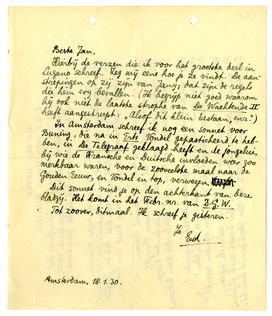 Beste Jan,
Hierbij de verzen die ik voor het grootste deel in
Lugano schreef. Zeg mij eens hoe je ze vindt. De aan-
strepingen op zij zijn van Jany; dat zijn de regels
die hem erg bevallen. (Ik begrijp niet goed waarom
hij ook niet de laatste strophe van De Wachtende II
heeft aangestreept: „Alsof dit klein bestaan, enz.")
In Amsterdam schreef ik nog een sonnet voor
Buning, die na in Erts Vondel gepasticheerd te heb-
ben, in De Telegraaf geklaagd heeft en de jongelui,
bij wie de Fransche en Duitsche invloeden weer zoo
merkbaar waren, voor de zooveelste maal naar de
Gouden Eeuw, en Vondel in top, verwezen
Dit sonnet vind je op den achterkant van deze
bladzij. Het komt in het Febr. nr. van D.G.W.
Tot zoover, ditmaal. Ik schreef je gisteren.
Je
Ed.
Amsterdam, 18.1.30.